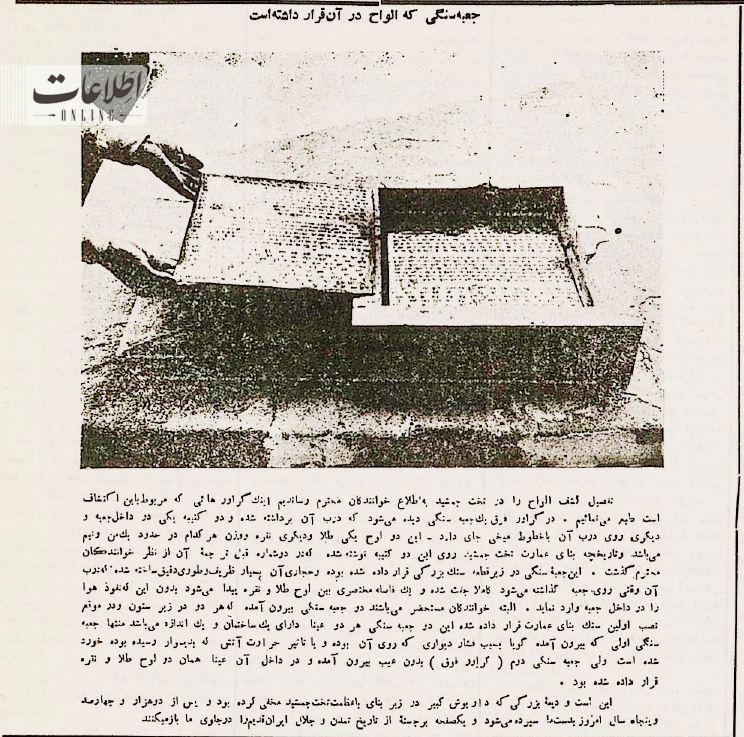 جعبه‌سنگی که الواح در آن قرار داشته‌است
اطلاعات
ONLINE
تفصیل کشف الواح را در تخت جمشید به‌اطلاع خوانندگان محترم رساندیم اینك گراور هائی که مربوط باین اکتشاف
است طبع می‌نمائیم . در گراور فوق یك‌جعبه سنگی دیده می‌شود که درب آن برداشته شده و دو کتیبه یکی در داخل‌جعبه و
دیگری روی درب آن باخطوط میخی جای دارد - این دو لوح یکی طلا ودیگری نقره ووزن هر کدام در حدود یك‌من ونیم
می‌باشد وتاریخچه بنای عمارت تخت جمشید روی این دو کتیبه نوشته شده که‌در دوشماره قبل ترجمهٔ آن از نظر خوانندگان
محترم گذشت . این‌جعبهٔ سنگی در زیر قطعه سنك بزرگی قرار داده شده بوده وحجاری آن بسیار ظریف وطوری دقیق ساخته شده که‌درب
آن وقتی روی جعبه گذاشته می‌شود کاملا جفت شده و یك فاصله مختصری بین لوح طلا و نقره پیدا می‌شود بدون این که‌نفوذ هوا
را در داخل جعبه وارد نماید . البته خوانندگان مستحضر می‌باشند دو جعبه سنگی بیرون آمده که‌هر دو در زیر ستون ودر موقع
نصب اولین سنك بنای عمارت قرار داده شده این دو جعبه سنگی هر دو عینا دارای یك ساختمان و یك اندازه می‌باشد منتها جعبه
سنگی اولی که بیرون آمده گویا بسبب فشار دیواری که روی آن بوده و یا تاثیر حرارت آتش که بدیوار رسیده بوده خورد
شده است ولی جعبه سنگی دوم ( گراور فوق ) بدون عیب بیرون آمده و در داخل آن عینا همان دو لوح طلا و نقره
قرار داده شده بود .
این است و دیعهٔ بزرگی که داریوش کبیر در زیر بنای باعظمت تخت‌جمشید مخفی کرده بود و پس از دوهزار و چهارصد
وپنجاه سال امروز بدست‌ما سپرده می‌شود و یکصفحه برجستهٔ از تاریخ تمدن و جلال ایران قدیم‌را درجلوی ما بازمیکنند